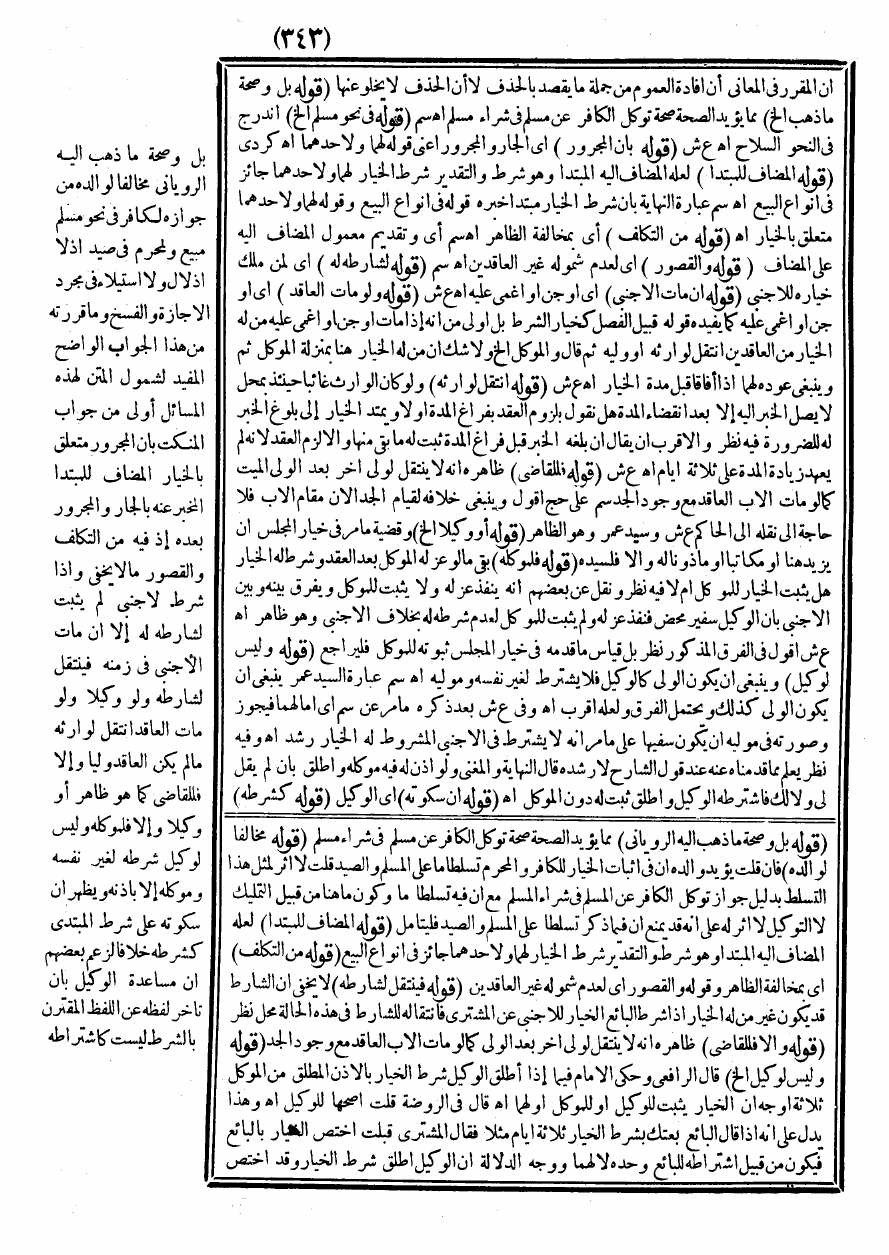 (٣٤٣)
ان المقرر فى المعانى أن افادة العموم من جملة ما يقصد بالحذف لا أن الحذف لا يخلو عنها (قوله بل وصحة
ما ذهب الخ) مما يؤيد الصحة صحة توكل الكافر عن مسلم فى شراء مسلم اه سم (قوله فى نحو مسلم الخ) اندرج
فى النحو السلاح اه ع ش (قوله بان المجرور) اى الجار والمجرور اعنى قوله لهما ولاحدهما اه كردى
(قوله المضاف للمبتدا) لعله المضاف اليه المبتدا وهو شرط والتقدير شرط الخيار لهما ولاحدهما جائز
فى انواع البيع اه سم عبارة النهاية بان شرط الخيار مبتدا خبره قوله فى انواع البيع وقوله لهما ولاحدهما
متعلق بالخيار اه (قوله من التكلف) أى بمخالفة الظاهر اه سم أى وتقديم معمول المضاف اليه
على المضاف (قوله والقصور) اى لعدم شموله غير العاقدين اه سم (قوله لشارطه له) اى لمن ملك
خياره للاجنبى (قوله ان مات الاجنبى) اى او جن او اغمى عليه اه ع ش (قوله ولو مات العاقد) اى او
جن او اغمى عليه كما يفيده قوله قبيل الفصل كخيار الشرط بل اولى من انه إذا مات او جن او اغمى عليه من له
الخيار من العاقدين انتقل لوارثه او وليه ثم قال والموكل الخ ولا شك ان من له الخيار هنا بمنزلة الموكل ثم
وينبغى عوده لهما اذا أفاقا قبل مدة الخيار اه ع ش (قوله انتقل لوارثه) ولو كان الوارث غائبا حينئذ بمحل
لا يصل الخبر اليه إلا بعد انقضاء المدة هل نقول بلزوم العقد بفراغ المدة او لا ويمتد الخيار إلى بلوغ الخبر
له للضرورة فيه نظر والاقرب ان يقال ان بلغه الخبر قبل فراغ المدة ثبت له ما بقى منها والا لزم العقد لانه لم
يعهد زيادة المدة على ثلاثة ايام اه ع ش (قوله فللقاضى) ظاهره انه لا ينتقل لولى اخر بعد الولى الميت
كما لو مات الاب العاقد مع وجود الجد سم على حج اقول وينبغى خلافه لقيام الجد الان مقام الاب فلا
حاجة الى نقله الى الحاكم ع ش وسيد عمر وهو الظاهر (قوله أو وكيلا الخ) وقضية ما مر فى خيار المجلس ان
يزيد هنا او مكاتبا او ماذونا له والا فلسيده (قوله فلموكله) بقى ما لو عزله الموكل بعد العقد وشرطه له الخيار
هل يثبت الخيار للموكل ام لا فيه نظر ونقل عن بعضهم انه ينفذ عزله ولا يثبت للموكل ويفرق بينه وبين
الاجنبى بان الوكيل سفير محض فنفذ عزله ولم يثبت للموكل لعدم شرطه له بخلاف الاجنبى وهو ظاهر اه
ع ش اقول فى الفرق المذكور نظر بل قياس ما قدمه فى خيار المجلس ثبوته للموكل فليراجع (قوله وليس
لوكيل) وينبغى ان يكون الولى كالوكيل فلا يشترط لغير نفسه وموليه اه سم عبارة السيد عمر ينبغى ان
يكون الولى كذلك ويحتمل الفرق ولعله اقرب اه وفى ع ش بعد ذكره ما مر عن سم اى اما لهما فيجوز
وصورته فى موليه ان يكون سفيها على ما مر انه لا يشترط فى الاجنبى المشروط له الخيار رشد اه وفيه
نظر يعلم بما قدمناه عنه عند قول الشارح لا رشده قال النهاية والمغنى ولو اذن له فيه موكله واطلق بان لم يقل
لى ولا لك فاشترطه الوكيل واطلق ثبت له دون الموكل اه (قوله ان سكوته) اى الوكيل (قوله كشرطه)
(قوله بل وصحة ما ذهب اليه الرويانى) مما يؤيد الصحة صحة توكل الكافر عن مسلم فى شراء مسلم (قوله مخالفا
لوالده) فان قلت يؤيد والده ان فى اثبات الخيار للكافر والمحرم تسلطا ما على المسلم والصيد قلت لا اثر لمثل هذا
التسلط بدليل جواز توكل الكافر عن المسلم فى شراء المسلم مع ان فيه تسلطا ما وكون ما هنا من قبيل التمليك
لا التوكيل لا اثر له على انه قد يمنع ان فيما ذكر تسلطا على المسلم والصيد فليتامل (قوله المضاف للمبتدا) لعله
المضاف اليه المبتدا وهو شرط والتقدير شرط الخيار لهما ولاحدهما جائز فى انواع البيع (قوله من التكلف)
اى بمخالفة الظاهر وقوله والقصور اى لعدم شموله غير العاقدين (قوله فينتقل لشارطه) لا يخفى ان الشارط
قد يكون غير من له الخيار اذا شرط البائع الخيار للاجنبى عن المشترى فانتقاله للشارط فى هذه الحالة محل نظر
(قوله والا فللقاضى) ظاهره انه لا ينتقل لولى اخر بعد الولى كما لو مات الاب العاقد مع وجود الجد (قوله
وليس لوكيل الخ) قال الرافعى وحكى الامام فيما إذا أطلق الوكيل شرط الخيار بالاذن المطلق من الموكل
ثلاثة اوجه ان الخيار يثبت للوكيل او للموكل او لهما اه قال فى الروضة قلت اصحها للوكيل اه وهذا
يدل على انه اذا قال البائع بعتك بشرط الخيار ثلاثة ايام مثلا فقال المشترى قبلت اختص الخيار بالبائع
فيكون من قبيل اشتراطه للبائع وحده لا لهما ووجه الدلالة ان الوكيل اطلق شرط الخيار وقد اختص
بل وصحة ما ذهب اليه
الرويانى مخالفا لوالده من
جوازه لكافر فى نحو مسلم
مبيع ولمحرم فى صيد اذ لا
اذلال ولا استيلاء فى مجرد
الاجازة والفسخ وما قررته
من هذا الجواب الواضح
المفيد لشمول المتن لهذه
المسائل أولى من جواب
المنكت بان المجرور متعلق
بالخيار المضاف للمبتدا
المخبر عنه بالجار والمجرور
بعده إذ فيه من التكلف
والقصور ما لا يخفى واذا
شرط لاجنبى لم يثبت
لشارطه له إلا ان مات
الأجنبى فى زمنه فينتقل
لشارطه ولو وكيلا ولو
مات العاقد انتقل لوارثه
ما لم يكن العاقد وليا وإلا
فللقاضى كما هو ظاهر أو
وكيلا وإلا فلموكله وليس
لوكيل شرطه لغير نفسه
وموكله إلا باذنه ويظهر ان
سكوته على شرط المبتدى
كشرطه خلافا لزعم بعضهم
ان مساعدة الوكيل بان
تاخر لفظه عن اللفظ المقترن
بالشرط ليست كاشتراطه